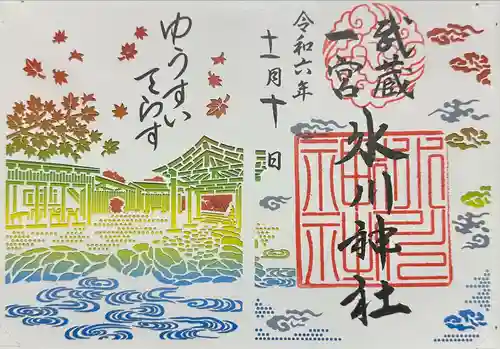 武蔵
一宮
氷川神社
令和六年
十一月十日
ゆうすい
てらす